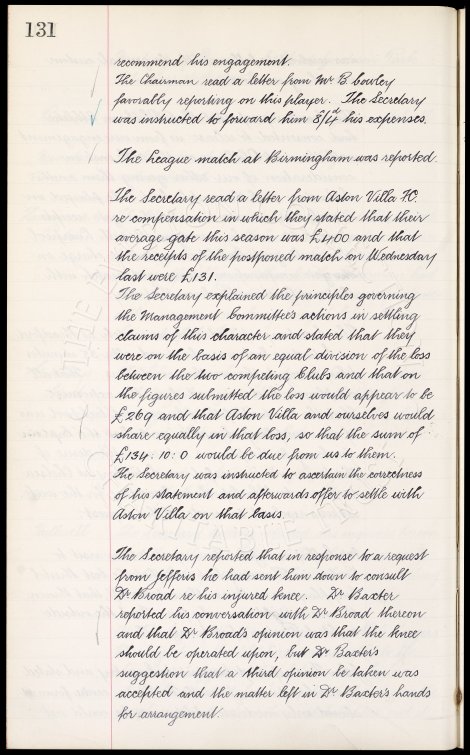 131
recommend his engagement.
The Chairman read a letter from Mr B. Cowley
favorably reporting on this player. The Secretary
was instructed to forward him 8/4d his expenses.
The League match at Birmingham was reported.
The Secretary read a letter from Aston Villa FC.
re compensation in which they stated that their
average gate this season was £400 and that
the receipts of the postponed match on Wednesday
last were £131.
The Secretary explained the principles governing
the Management Committee's actions in settling
claims of this character and stated that they
were on the basis of an equal division of the loss
between the two competing Clubs and that on
the figures submitted the loss would appear to be
£269 and that Aston Villa and ourselves would
share equally in that loss, so that the sum of
£134: 10: 0 would be due from us to them.
The Secretary was instructed to ascertain the correctness
of his statement and afterwards offer to settle with
Aston Villa on that basis.
The Secretary reported that in response to a request
from Jefferis he had sent him down to consult
Dr Broad re his injured knee. Dr Baxter
reported his conversation with Dr Broad thereon
and that Dr Broad's opinion was that the knee
should be operated upon, but Dr Baxter's
suggestion that a third opinion be taken was
accepted and the matter left in Dr Baxter's hands
for arrangement.